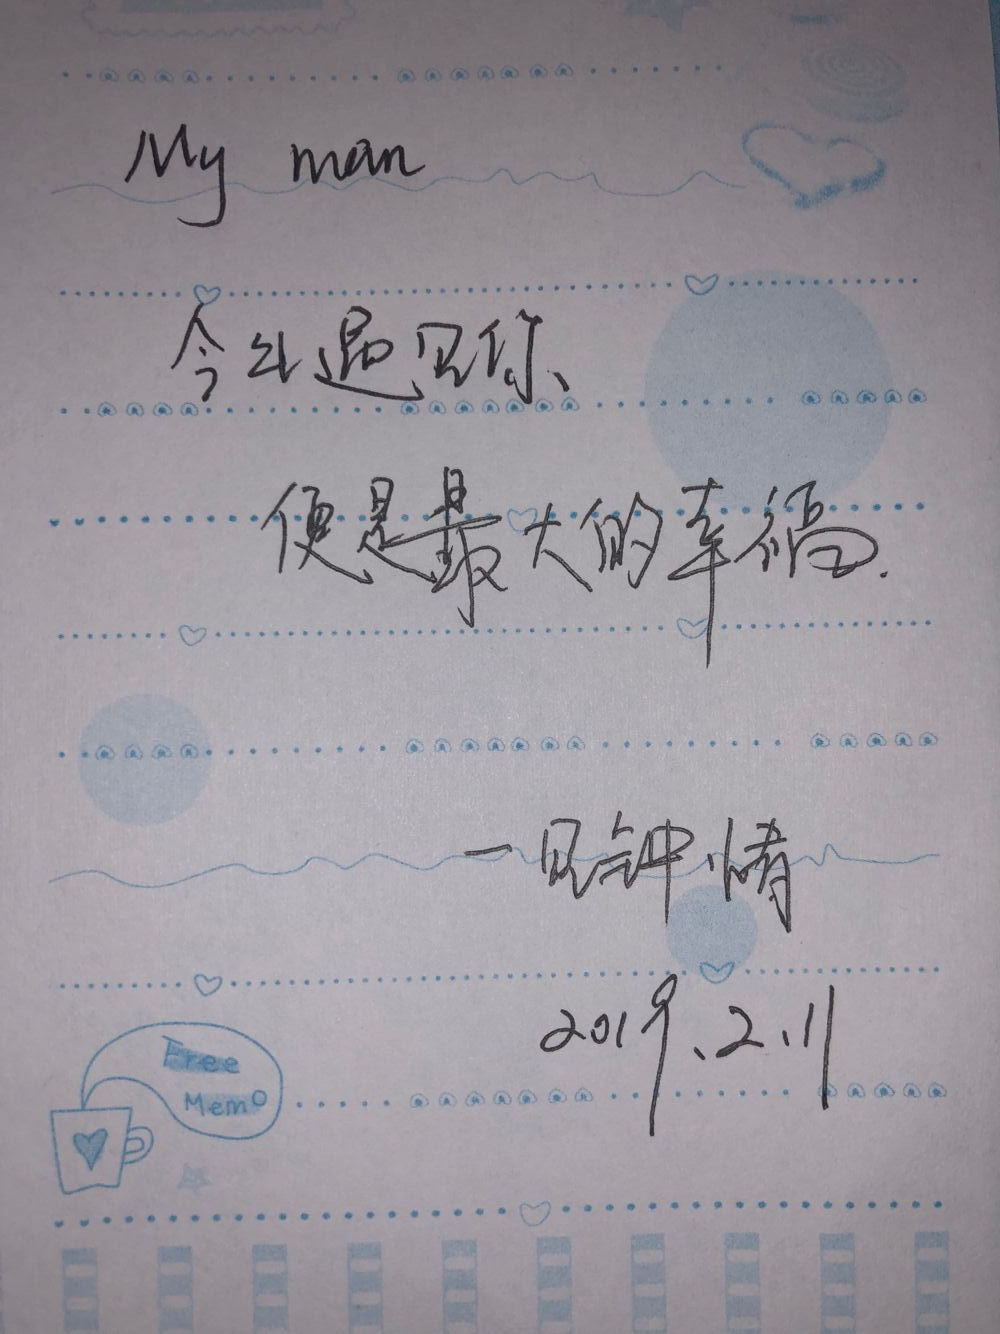 My man
今生遇见你、
便是最大的幸福.
一见钟情
2019.2.11
Free
Memo